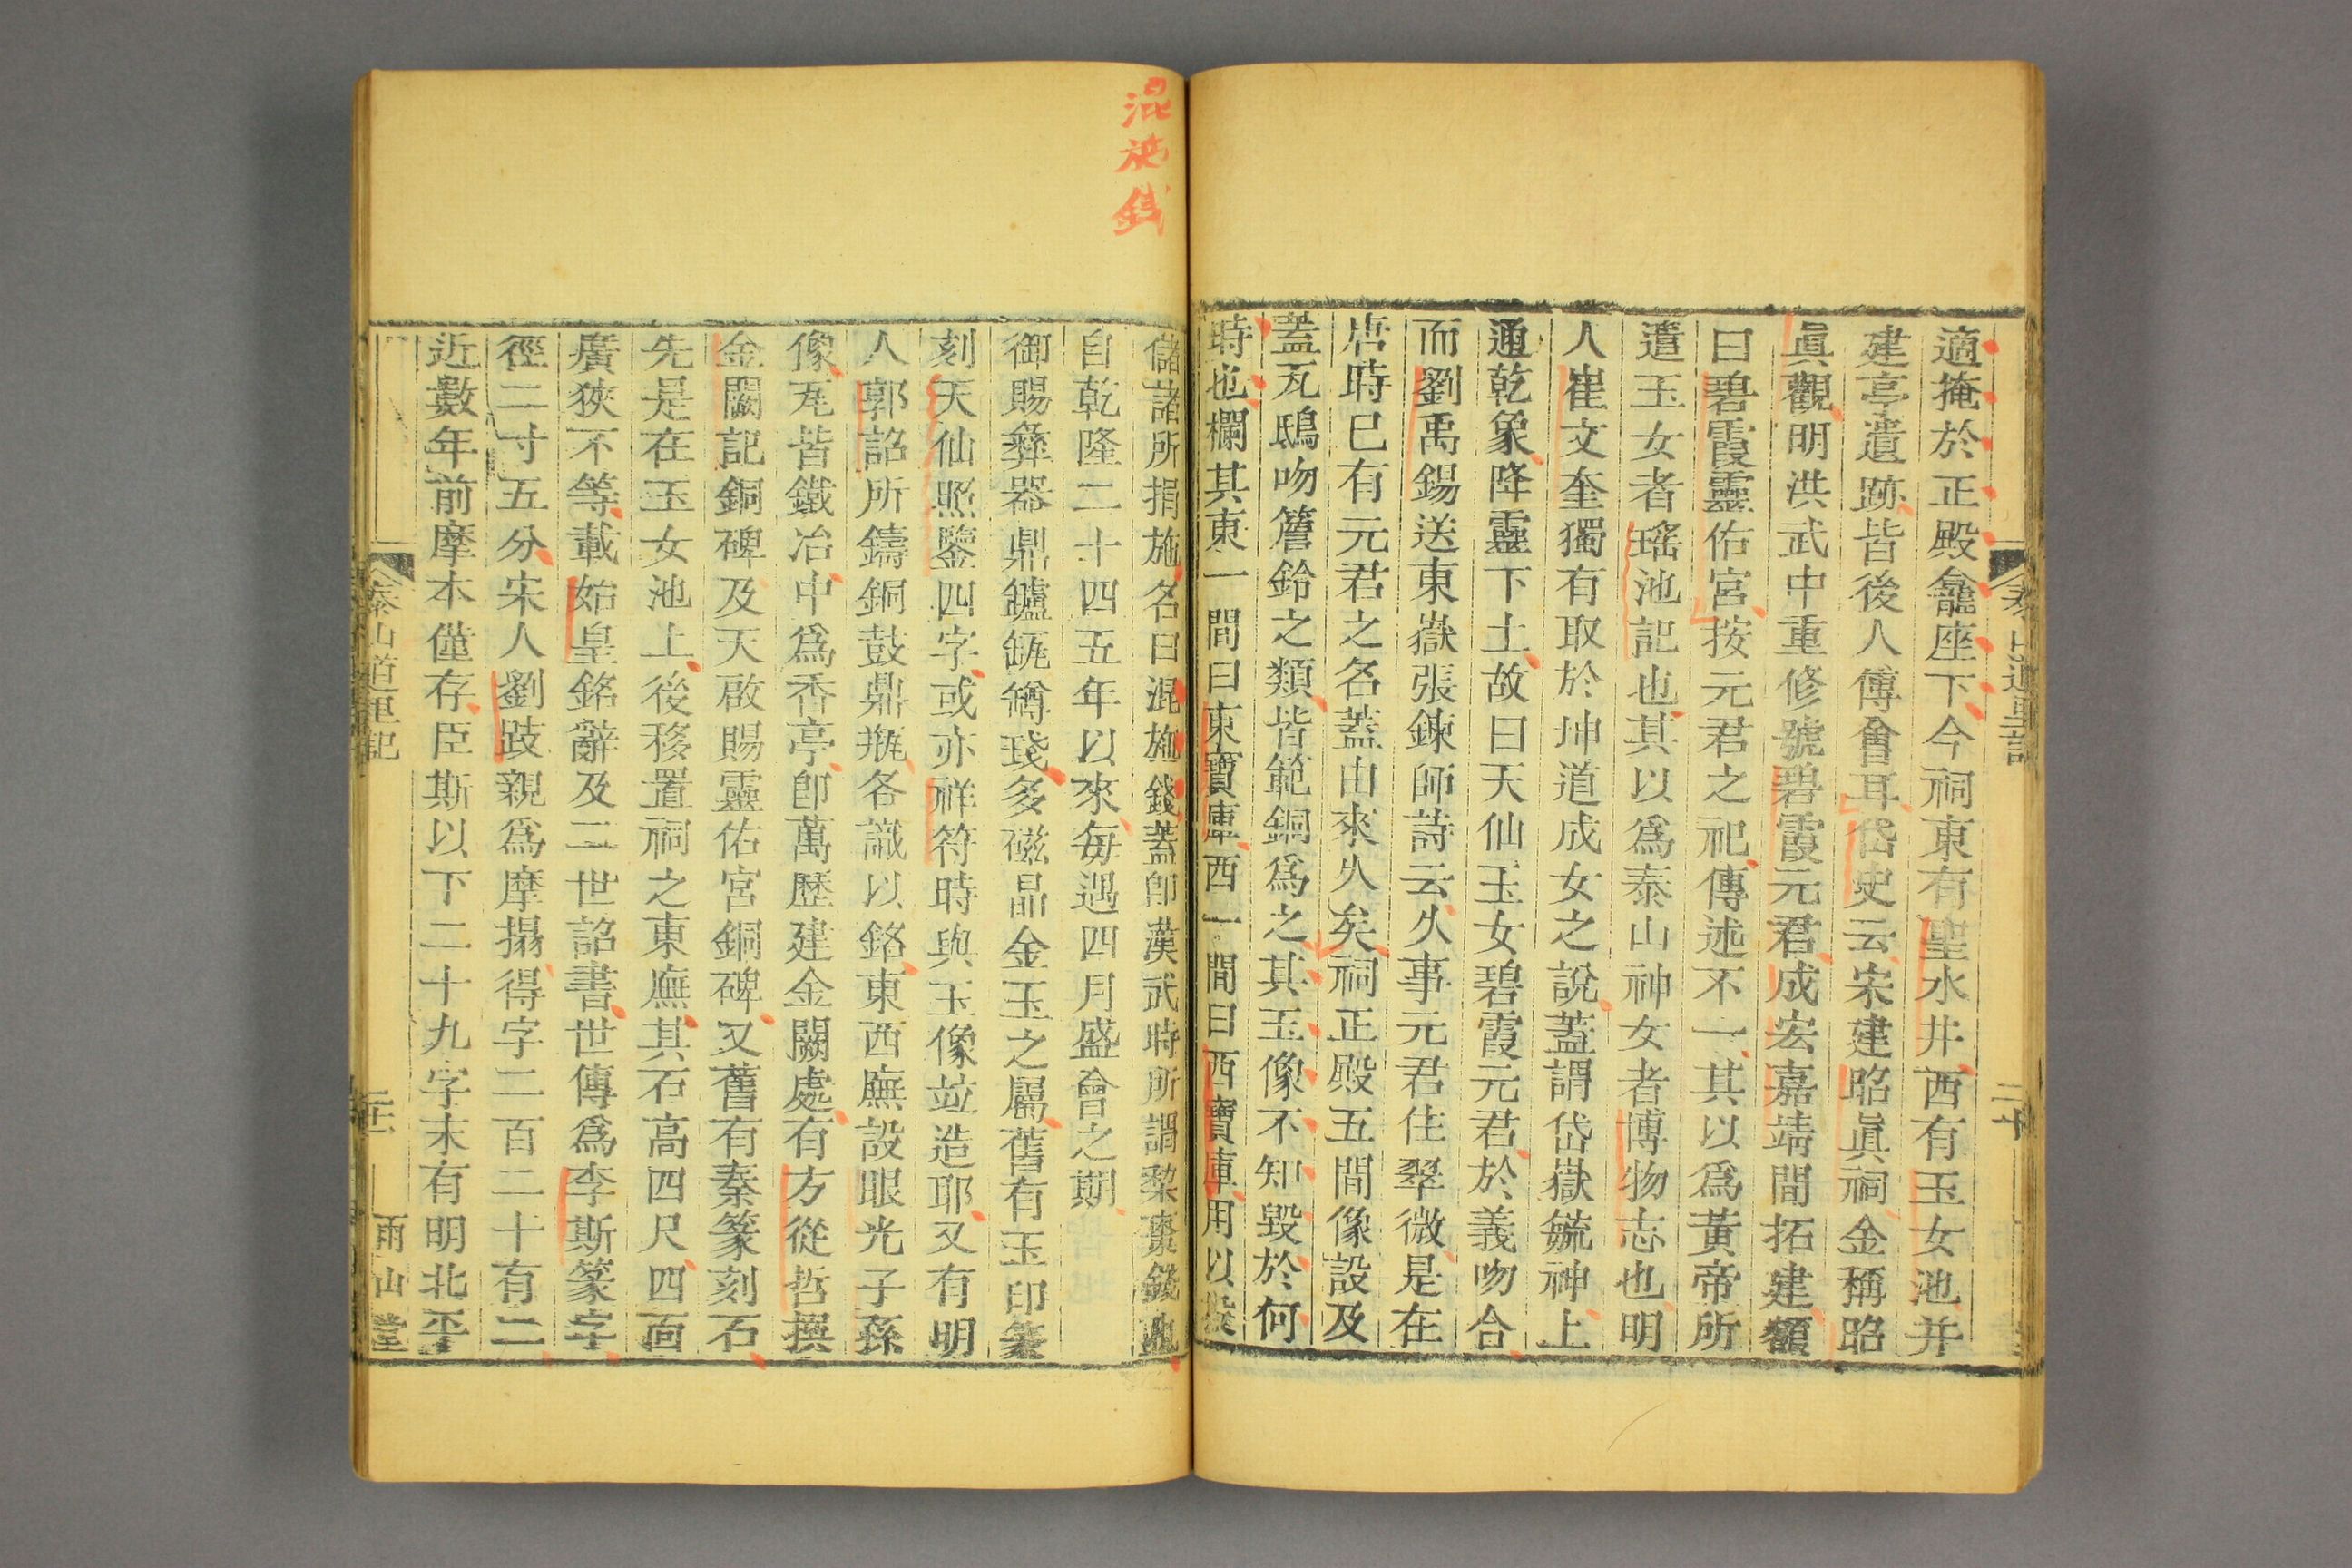 適掩於正殿龕座下今祠東有聖水井西有玉女池并
建亭遺跡皆後人傅會耳岱史云宋建昭眞祠金稱昭
眞觀明洪武中重修號碧霞元君成宏嘉靖間拓建額
曰碧霞靈佑宮按元君之祀傳述不一其以爲黃帝所
遣玉女者瑤池記也其以爲泰山神女者博物志也明
人崔文奎獨有取於坤道成女之說蓋謂岱嶽毓神上
通乾象降靈下土故曰天仙玉女碧霞元君於義吻合
而劉禹錫送東嶽張鍊師詩云久事元君住翠微是在
唐時已有元君之名蓋由來久矣祠正殿五間像設及
蓋瓦鴟吻簷鈴之類皆範銅爲之其玉像不知毀於何
時也欄其東一間曰東寶庫西一間曰西寶庫用以
泰山道里記
二十
混施錢
儲諸所捐施名曰混施錢蓋卽漢武時所謂梨棗錢也
自乾隆二十四五年以來每遇四月盛會之期
御賜彝器鼎鑪甁罇琖多磁晶金玉之屬舊有玉印篆
刻天仙照鑒四字或亦祥符時與玉像竝造耶又有明
人郭詔所鑄銅鼓鼎甁各識以銘東西廡設眼光子孫
像瓦皆鐵冶中爲香亭卽萬歷建金闕處有方從哲撰
金闕記銅碑及天啟賜靈佑宮銅碑又舊有秦篆刻石
先是在玉女池上後移置祠之東廡其石高四尺四面
廣狹不等載始皇銘辭及二世詔書世傳爲李斯篆字
徑二寸五分宋人劉跂親爲摩搨得字二百二十有二
近數年前摩本僅存臣斯以下二十九字末有明北平
泰山道里記
二十一
雨山堂